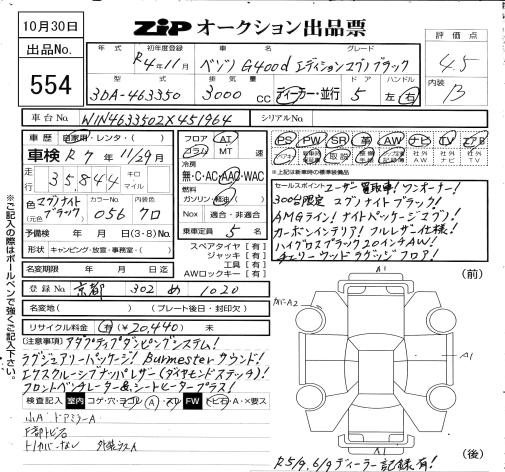 10月30日
ZIP オークション出品票
出品No.
554
年式
初年度登録 R4年11月
車名 ベンツ G400d
グレード エディションマグノブラック
評価点 4.5
型式 3DA-463350
排気量 3000 cc
ディーラー・並行
ドア 5
ハンドル 左・右
内装 B
車台No. W1N4633502X451964
シリアルNo.
車歴 自家用・レンタ・( )
車検 R7年11/29月
走行 35844 キロ マイル
色 マグノナイトブラック (元色)
カラーNo. 056
色替 クロ
予備検 年 月 日 (3・8)No.
形状 キャンピング・放宣・事務室・( )
名変期限 年 月 日迄
登録No. 京都 302 め 1020
名変地 ( ) (プレート後日・封印欠)
リサイクル料金 有(¥20,440) 未
フロア AT
コラム MT 速
冷房
無・C・AC・AAC・WAC
燃料
ガソリン・軽油・( )
Nox 適合・非適合
乗車定員 5 名
スペアタイヤ [有]
ジャッキ [有]
工具 [有]
AWロックキー [有]
PS PW SR 革 AW ナビ TV エアB
取説 社外AW 社外ナビ 社外TV
★上記は新車時の標準装備品
セールスポイント ユーザー買取車!ワンオーナー!
300台限定 マグノナイトブラック!
AMGライン!ナイトパッケージマグノ!
カーボンインテリア!フルレザー仕様!
ハイグロスブラック20インチAW!
チェリーウッドラゲッジフロア!
[注意事項] アダプティブダンピングシステム!
ラグジュアリーパッケージ!Burmesterサウンド!
エクスクルーシブナッパレザー(ダイヤモンドステッチ)!
フロントベンチレーター&シートヒータープラス!
検査記入 室内 コゲ・穴・ヨゴレ・A・スレ FW トビ石・A・×要ス
小A ドアミラーA
下部トビ石
トノカバーなし
(前)
A1
カバーA2
A1
A1
(後)
R5/9,6/9ディーラー記録有!
※ご記入の際はボールペンで強くご記入下さい。